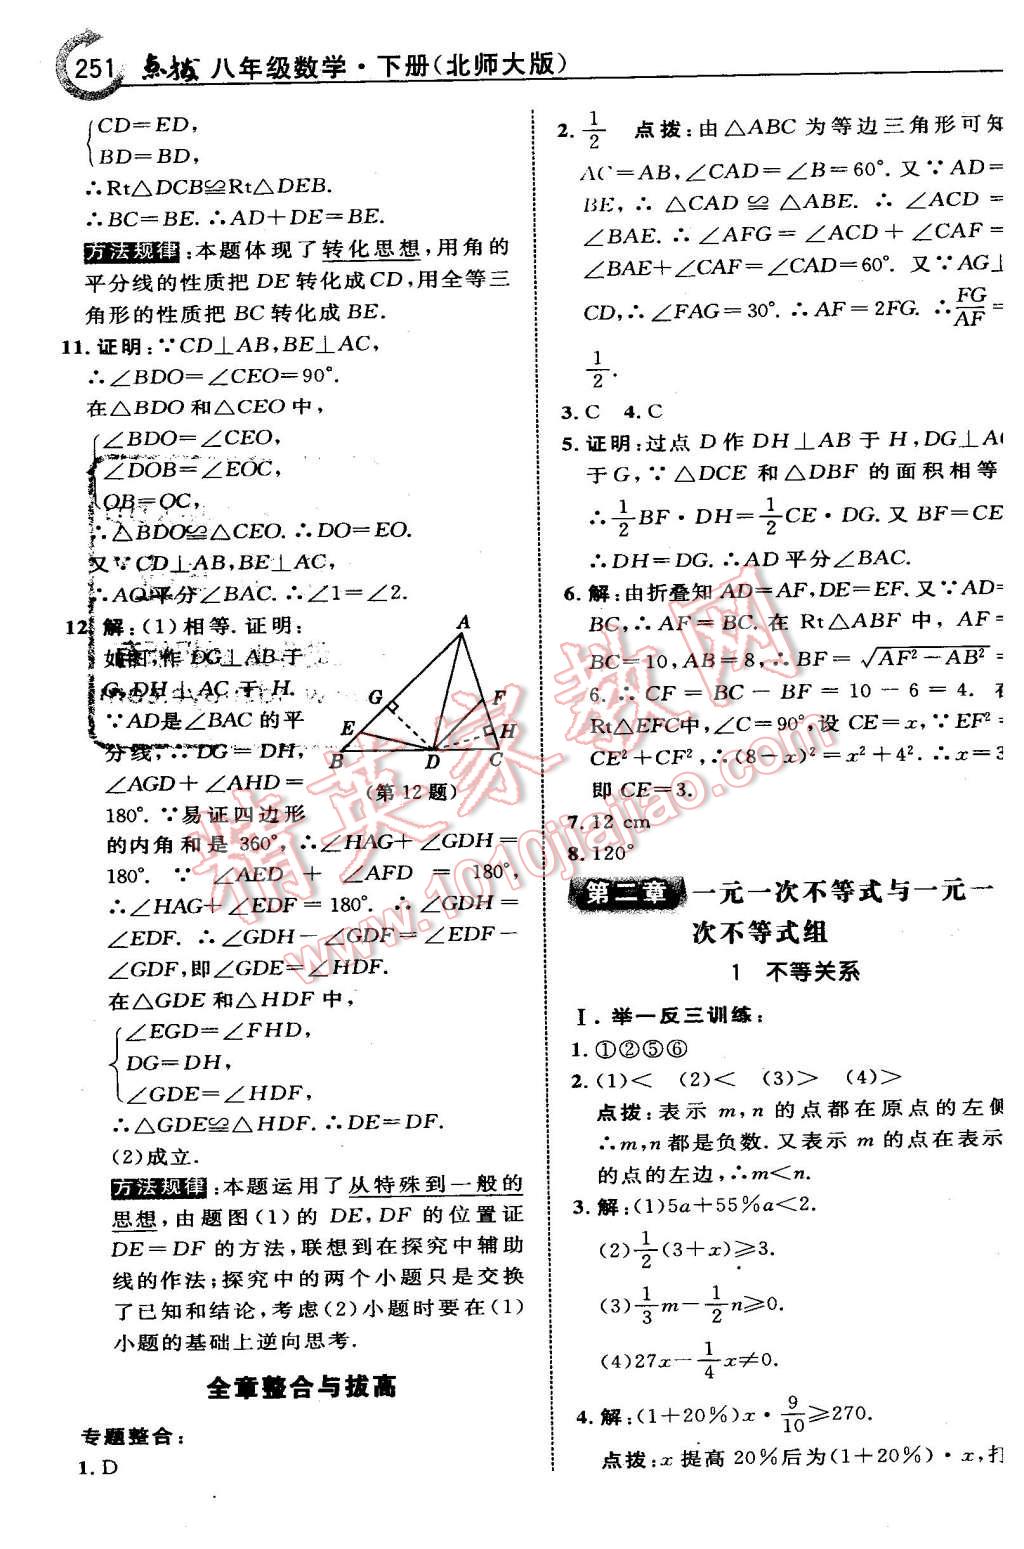 251 点拨 八年级数学·下册(北师大版)
CD=ED,
BD=BD,
∴Rt△DCB≌Rt△DEB.
∴BC=BE. ∴AD+DE=BE.
方法规律:本题体现了转化思想,用角的
平分线的性质把 DE 转化成CD,用全等三
角形的性质把 BC 转化成 BE.
11. 证明:∵CD⊥AB,BE⊥AC,
∴∠BDO=∠CEO=90°.
在△BDO 和△CEO 中,
∠BDO=∠CEO,
∠DOB=∠EOC,
OB=OC,
∴△BDO≌△CEO. ∴DO=EO.
又∵CD⊥AB,BE⊥AC,
∴AO平分∠BAC. ∴∠1=∠2.
12. 解:(1)相等. 证明:
如图,作 DG⊥AB 于
G, DH⊥AC 于 H.
∵AD是∠BAC 的平
分线,∴DG=DH,
∠AGD+∠AHD=
180°. ∵易证四边形
A
G
F
E
H
B
D
C
(第 12 题)
的内角和是 360°, ∴∠HAG+∠GDH=
180°. ∵ ∠AED + ∠AFD = 180°,
∴∠HAG+∠EDF=180°. ∴∠GDH=
∠EDF. ∴∠GDH-∠GDF=∠EDF-
∠GDF,即∠GDE=∠HDF.
在△GDE 和△HDF 中,
∠EGD=∠FHD,
DG=DH,
∠GDE=∠HDF,
∴△GDE≌△HDF. ∴DE=DF.
(2)成立.
方法规律:本题运用了从特殊到一般的
思想,由题图(1)的 DE,DF 的位置证
DE=DF 的方法,联想到在探究中辅助
线的作法;探究中的两个小题只是交换
了已知和结论,考虑(2)小题时要在(1)
小题的基础上逆向思考.
全章整合与拔高
专题整合:
1. D
2. 1/2 点拨:由△ABC 为等边三角形可知
AC=AB,∠CAD=∠B=60°. 又∵AD=
BE, ∴ △CAD ≌ △ABE. ∴ ∠ACD =
∠BAE. ∴∠AFG=∠ACD+∠CAF=
∠BAE+∠CAF=∠CAD=60°. 又∵AG⊥
CD,∴∠FAG=30°. ∴AF=2FG. ∴FG/AF=
1/2.
3. C 4. C
5. 证明:过点 D 作 DH⊥AB 于 H,DG⊥A
于 G, ∵△DCE 和△DBF 的面积相等
∴1/2BF·DH=1/2CE·DG. 又 BF=CE
∴DH=DG. ∴AD 平分∠BAC.
6. 解:由折叠知 AD=AF,DE=EF. 又∵AD=
BC,∴AF=BC. 在 Rt△ABF 中, AF=
BC=10,AB=8,∴BF=√(AF²-AB²)=
6. ∴ CF = BC - BF = 10 - 6 = 4. 在
Rt△EFC中,∠C=90°,设 CE=x,∵EF²=
CE²+CF²,∴(8-x)²=x²+4². ∴x=3
即 CE=3.
7. 12 cm
8. 120°
第二章 一元一次不等式与一元一
次不等式组
1 不等关系
Ⅰ. 举一反三训练:
1. ①②⑤⑥
2. (1)< (2)< (3)> (4)>
点拨:表示 m,n 的点都在原点的左侧
∴m,n 都是负数. 又表示 m 的点在表示
的点的左边,∴m<n.
3. 解:(1)5a+55%a<2.
(2)1/2(3+x)≥3.
(3)1/3m-1/2n≥0.
(4)27x-1/4x≠0.
4. 解:(1+20%)x·9/10≥270.
点拨:x 提高 20%后为(1+20%)·x,打
精英家教网
www.1010jiajiao.com